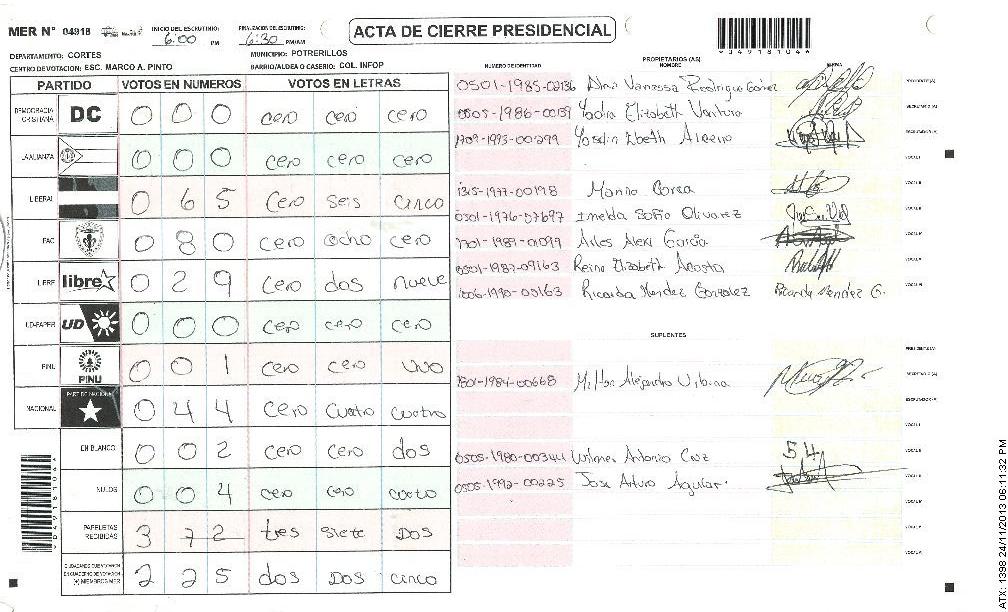 MER N° 04918
INICIO DEL ESCRUTINIO: 6:00 PM
FINALIZACION DEL ESCRUTINIO: 6:30 PM/AM
ACTA DE CIERRE PRESIDENCIAL
04918104
DEPARTAMENTO: CORTES
MUNICIPIO: POTRERILLOS
CENTRO DE VOTACION: ESC. MARCO A. PINTO
BARRIO/ALDEA O CASERIO: COL. INFOP
PARTIDO VOTOS EN NUMEROS VOTOS EN LETRAS
DEMOCRACIA CRISTIANA DC 0 0 0 cero cero cero
LA ALIANZA 0 0 0 cero cero cero
LIBERAL 0 6 5 cero seis cinco
PAC 0 8 0 cero ocho cero
LIBRE libre 0 2 9 cero dos nueve
UD-FAPER UD 0 0 0 cero cero cero
PINU PINU 0 0 1 cero cero uno
NACIONAL PARTIDO NACIONAL 0 4 4 cero cuatro cuatro
EN BLANCO 0 0 2 cero cero dos
NULOS 0 0 4 cero cero cuatro
PAPELETAS RECIBIDAS 3 7 2 tres siete Dos
CIUDADANOS QUE VOTARON EN CUADERNO DE VOTACION (+) MIEMBROS MER 2 2 5 dos Dos cinco
PROPIETARIOS (AS)
NUMERO DE IDENTIDAD NOMBRE FIRMA
0501-1985-02136 Alma Vanessa Rodriguez Gómez PRESIDENTE(A)
0505-1986-00139 Yadira Elizabeth Ventura SECRETARIO(A)
1709-1993-00299 Yoselin Ebeth ESCRUTADOR(A)
VOCAL I
1315-1977-00198 Marina Corea VOCAL II
0501-1976-07697 Imelda Sofia Olivarez VOCAL III
1701-1989-01099 Arles Alexi Garcia VOCAL IV
0501-1987-09163 Reina Elizabeth Acosta VOCAL V
1006-1990-00163 Ricarda Mendez Gonzalez Ricarda Mendez G. VOCAL VI
SUPLENTES
PRESIDENTE(A)
1801-1984-00668 Milton Alejandro Urbina SECRETARIO(A)
ESCRUTADOR(A)
VOCAL I
0505-1980-00344 Wilmer Antonio Cruz
0505-1992-00225 Jose Arturo Aguilar
04918104
ATX: 1398 24/11/2013 06:11:32 PM